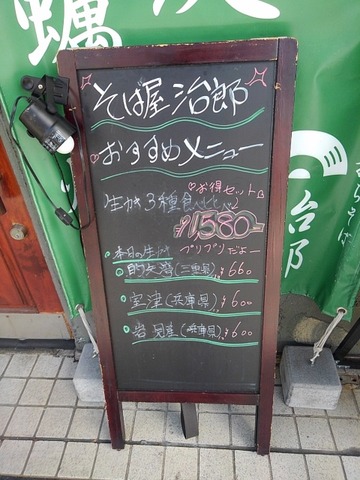 蠣
そば屋 治郎
おすすめメニュー
♡お得セット
生かき3種食べ比べ
¥1,580-
プリプリだよー
・本日の生かき
・的矢湾(三重県) ¥660
・室津(兵庫県) ¥600
・岩見産(兵庫県) ¥600
治郎